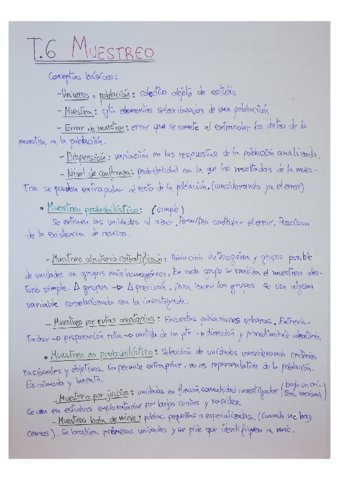 T.6 MUESTREO
Conceptos básicos:
- Universo o población: colectivo objeto de estudio
- Muestra: cjto elementos seleccionados de una población
- Error de muestreo: error que se comete al extrapolar los datos de la
muestra a la población.
- Dispersión: variación en las respuestas de la población analizada.
- Nivel de confianza: probabilidad con la que los resultados de la mues-
tra se pueden extrapolar al resto de la población. (considerando ya el error)
• Muestreo probabilístico: (simple)
Se extraen las unidades al azar. Permiten controlar el error. Precisan
de la existencia de censo.
- Muestreo aleatorio estratificado: Población heterogénea y grupos
de unidades en grupos más homogéneos. En cada grupo se realiza el muestreo alea-
torio simple. Δ grupos → Δ precisión. Para hacer los grupos se usa alguna
variable correlacionada con la investigada.
- Muestreo por rutas aleatorias: Encuestas urbanas.
→ preparación ruta → partida de un pto → dirección y procedimiento aleatorio.
• Muestreo no probabilístico: Selección de unidades considerando criterios
racionales y objetivos. No permite extrapolar. no es representativo de la población.
Es cómodo y barato.
- Muestreo por juicio: unidades en función comodidad investigador (bajo un cri-
terio racional)
Se usa en estudios exploratorios por bajos costes y rapidez.
- Muestreo bola de nieve: poblac. pequeñas o especializadas. (Cuando no hay
censos). Se localizan primeras unidades y se pide que identifiquen a más.